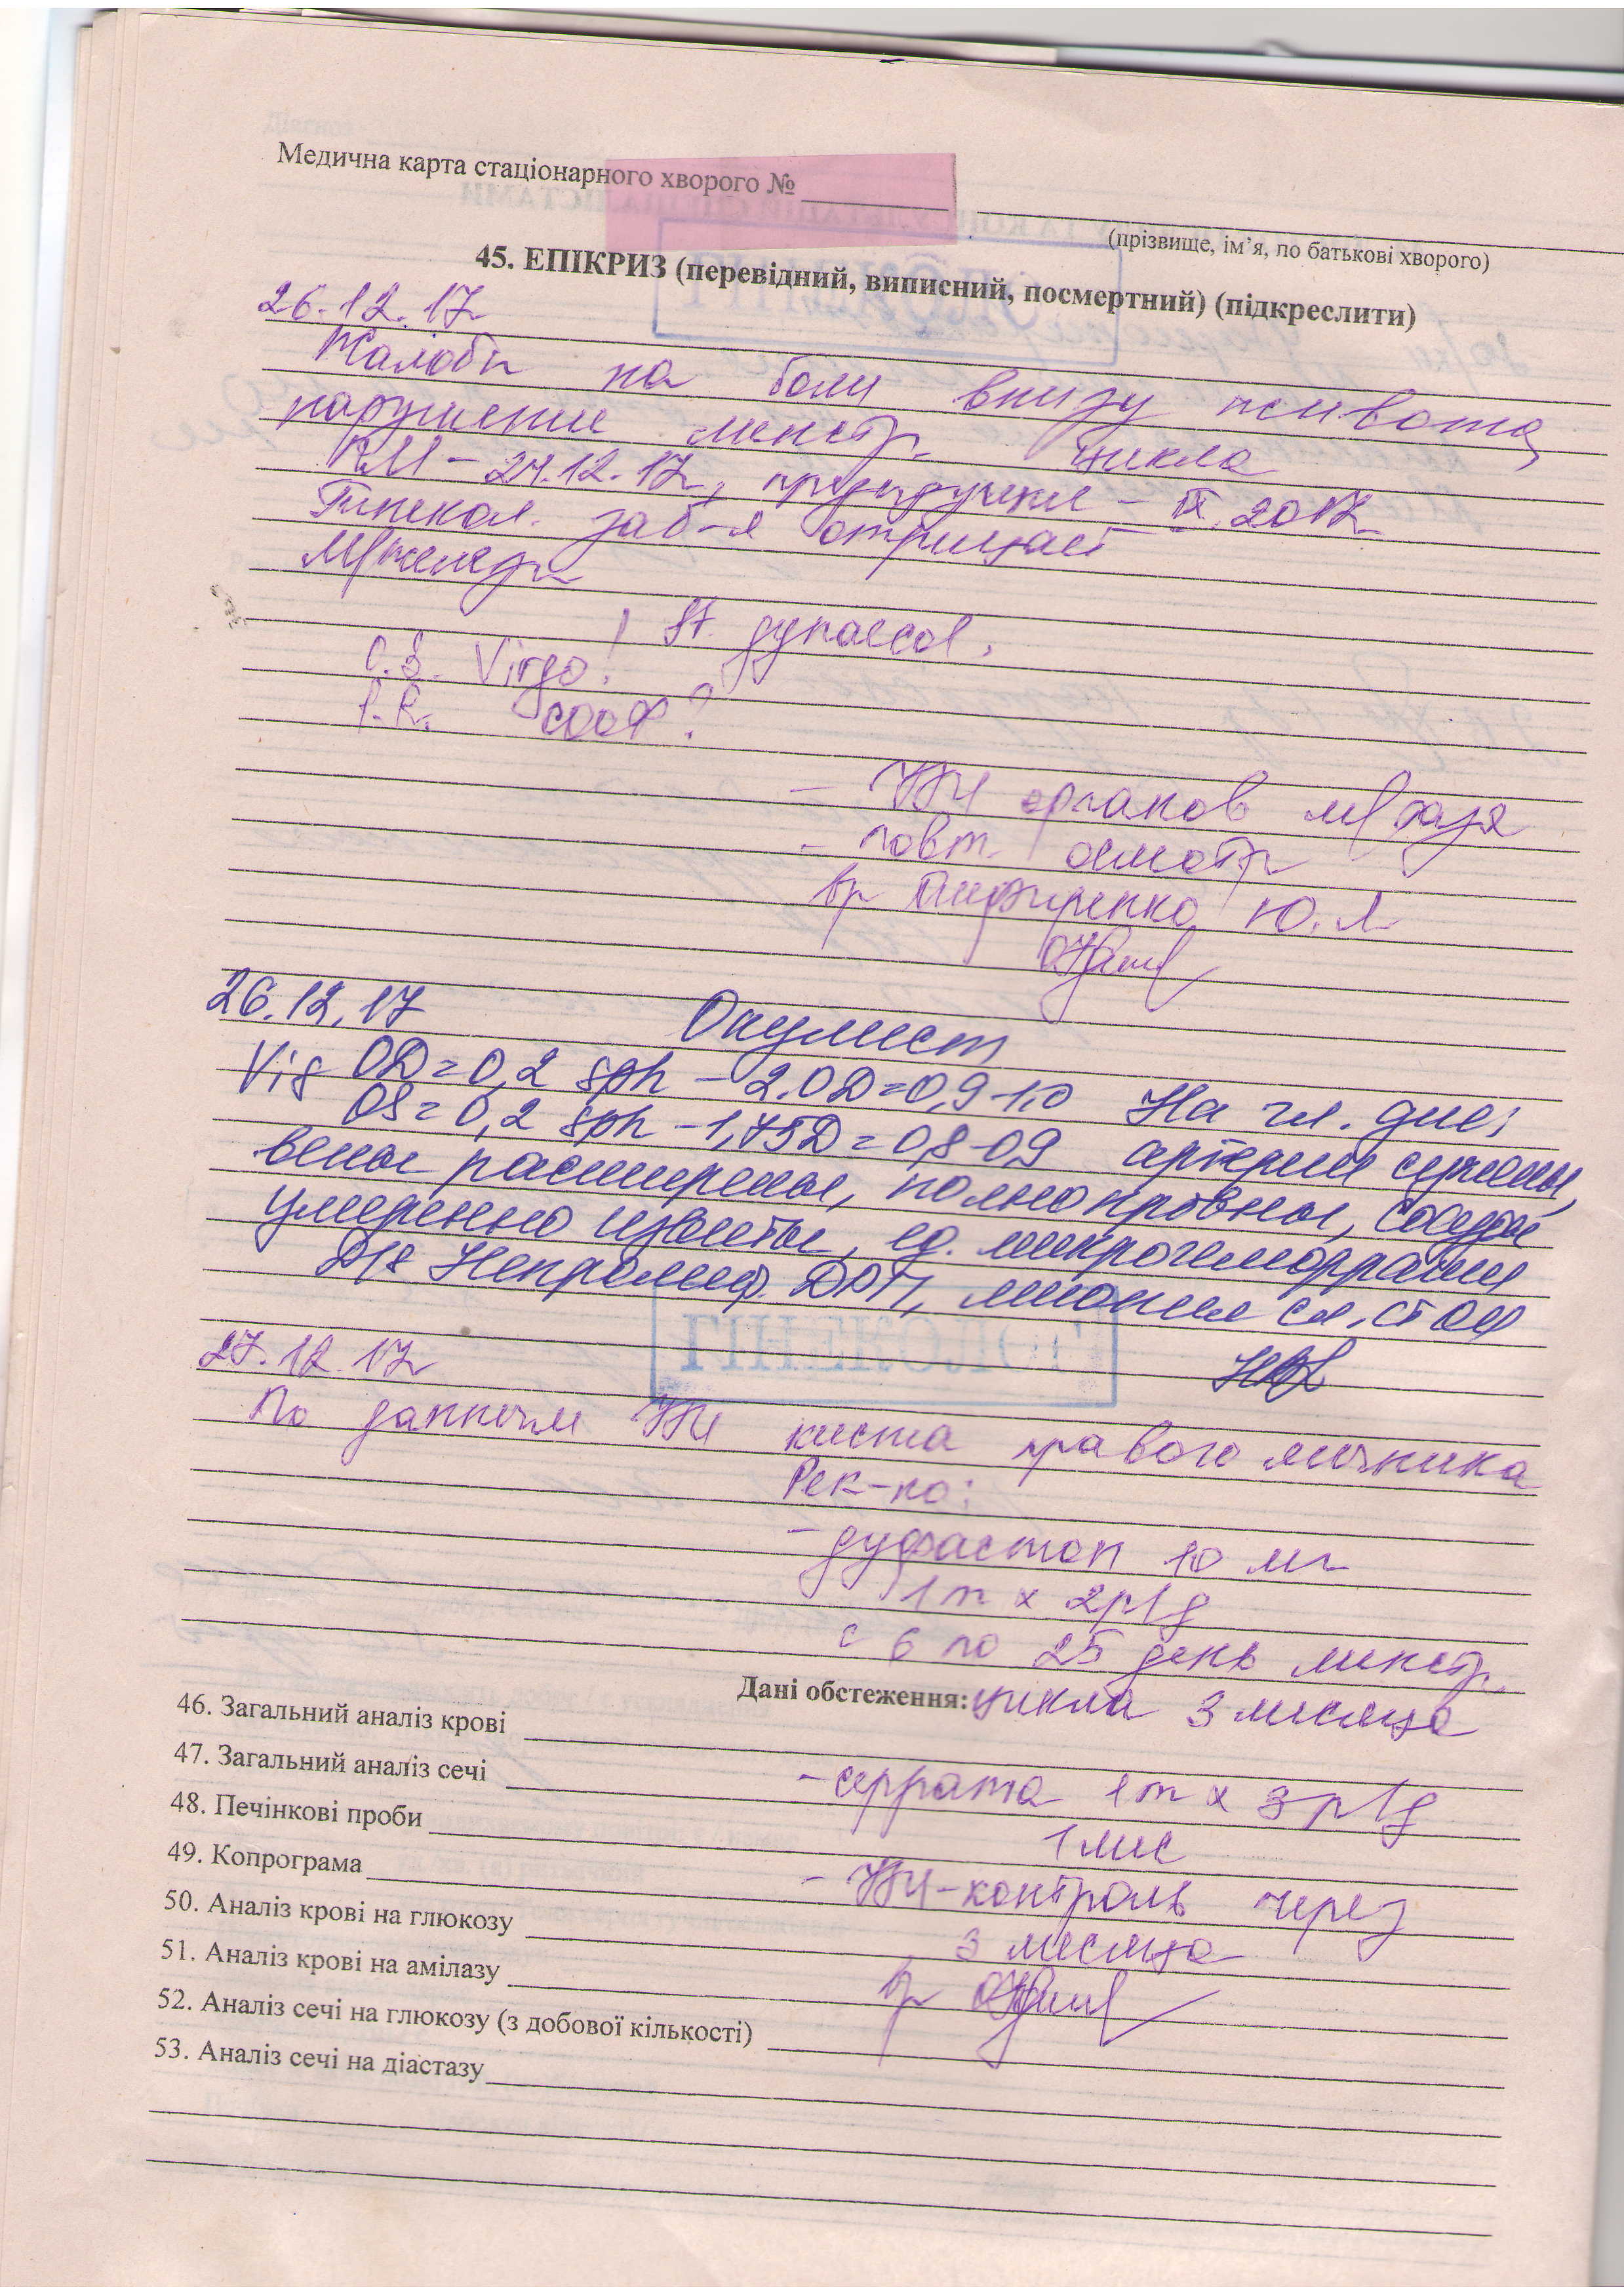 Медична карта стаціонарного хворого №
(прізвище, ім’я, по батькові хворого)
45. ЕПІКРИЗ (перевідний, виписний, посмертний) (підкреслити)
26.12.17
Жалобы на боли внизу живота,
нарушение менстр. цикла
RM - 24.12.17, предыдущие - IX. 2017
Гинекол. заб-я отрицает
St. gynaecol.
O.S. Virgo!
P.R.
- УЗИ органов м/таза
- повт. осмотр
вр Ю.Л
26.12.17 Окулист
Vis OD=0,2 sph -2.0D=0,9-1,0 На гл. дне:
OS=0,2 sph -1,75D=0,8-0,9 артерии сужены,
вены расширены, полнокровны, сосуды
умеренно извиты, ед. микрогеморрагии
D/s Непролиф. ДРП, миопия сл. ст OU
27.12.17
По данным УЗИ киста правого яичника
Рек-но:
- дуфастон 10 мг
1т x 2р/д
с 6 по 25 день менстр.
Дані обстеження: цикла 3 месяца
46. Загальний аналіз крові
47. Загальний аналіз сечі
- серрата 1т x 3р/д
48. Печінкові проби
1 мес
49. Копрограма
- УЗИ-контроль через
50. Аналіз крові на глюкозу
3 месяца
51. Аналіз крові на амілазу
вр
52. Аналіз сечі на глюкозу (з добової кількості)
53. Аналіз сечі на діастазу